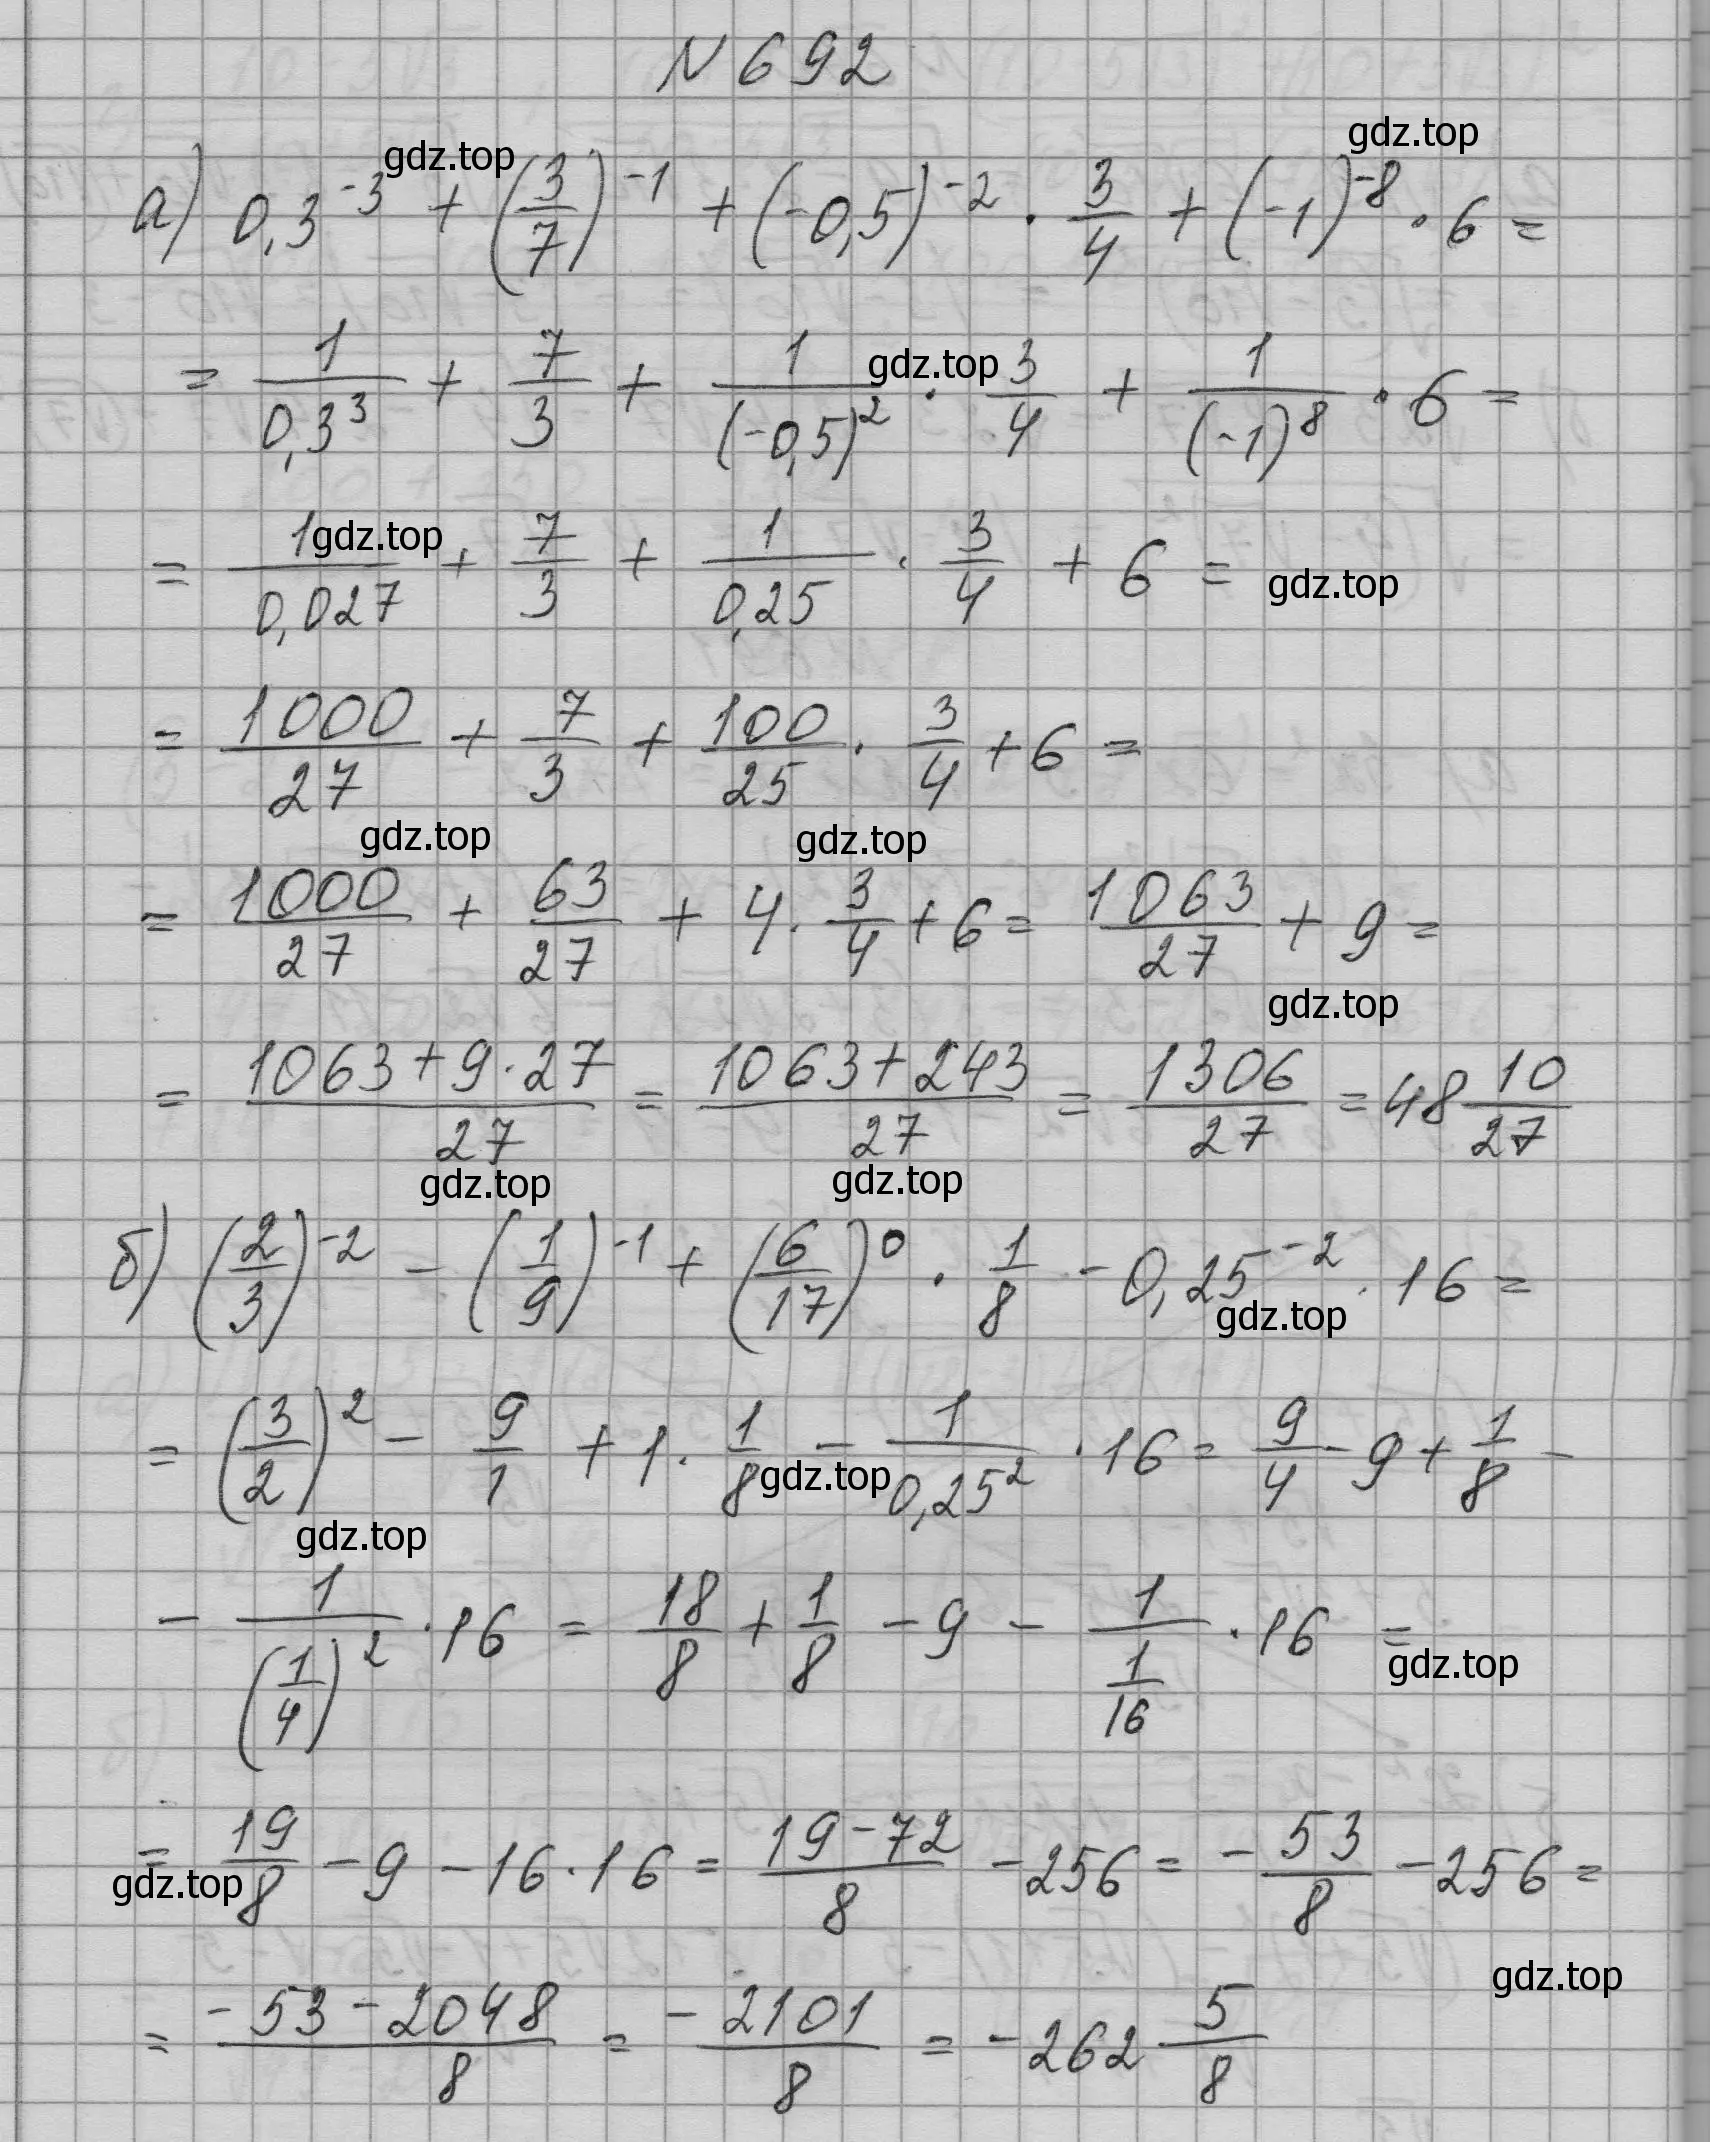 N 692
gdz.top gdz.top
а) 0,3^{-3} + (3/7)^{-1} + (-0,5)^{-2} · 3/4 + (-1)^{-8} · 6 =
gdz.top
= 1/0,3^3 + 7/3 + 1/(-0,5)^2 · 3/4 + 1/(-1)^8 · 6 =
gdz.top gdz.top
= 1/0,027 + 7/3 + 1/0,25 · 3/4 + 6 =
= 1000/27 + 7/3 + 100/25 · 3/4 + 6 =
gdz.top gdz.top
= 1000/27 + 63/27 + 4 · 3/4 + 6 = 1063/27 + 9 =
gdz.top
= (1063 + 9 · 27)/27 = (1063 + 243)/27 = 1306/27 = 48 10/27
gdz.top gdz.top
б) (2/3)^{-2} - (1/9)^{-1} + (6/17)^0 · 1/8 - 0,25^{-2} · 16 =
gdz.top
= (3/2)^2 - 9/1 + 1 · 1/8 - 1/0,25^2 · 16 = 9/4 - 9 + 1/8 -
gdz.top
gdz.top
- 1/(1/4)^2 · 16 = 18/8 + 1/8 - 9 - 1/(1/16) · 16 =
gdz.top
= 19/8 - 9 - 16 · 16 = (19 - 72)/8 - 256 = - 53/8 - 256 =
gdz.top
gdz.top
= (-53 - 2048)/8 = -2101/8 = -262 5/8